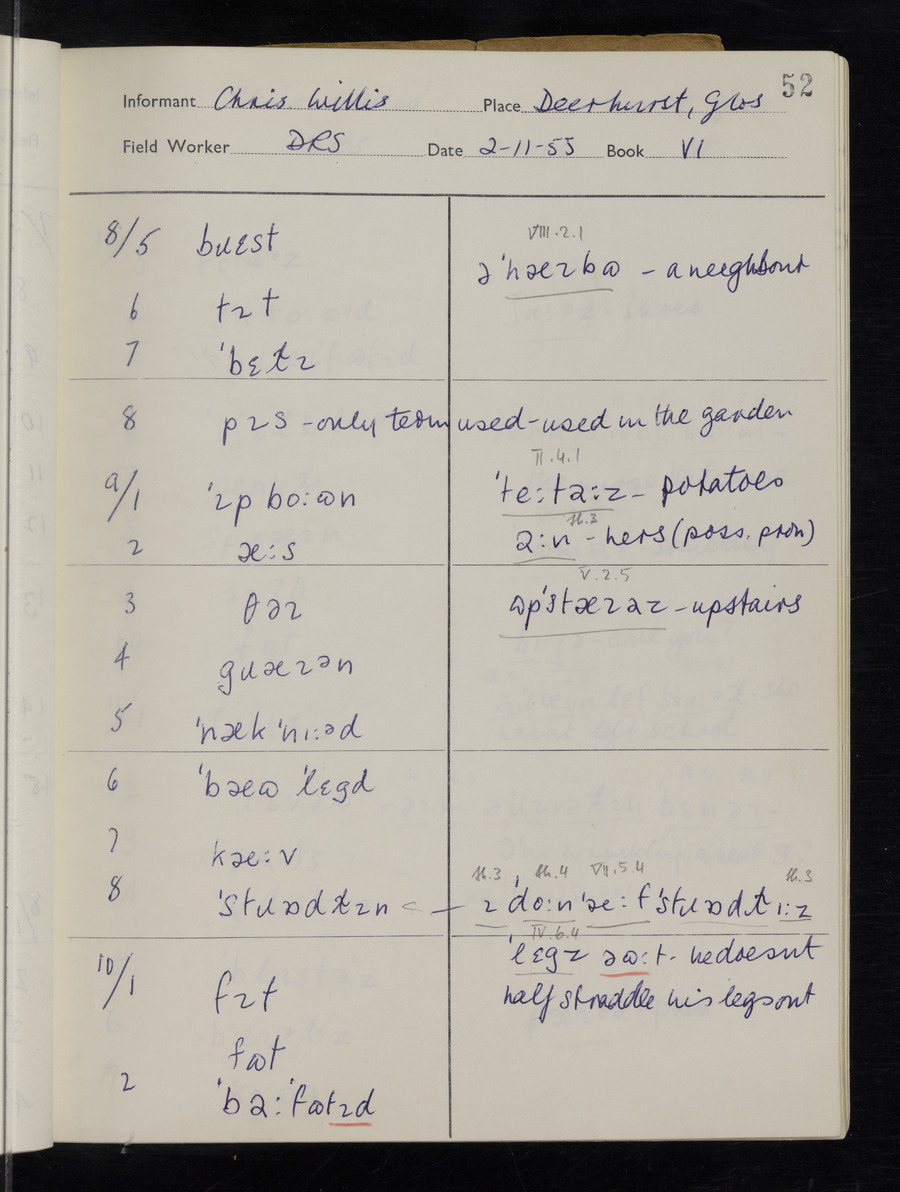 52
Informant Chris Willis Place Deerhurst, Glos
Field Worker DRS Date 2-11-55 Book VI
8/5 bɹɛst
VIII.2.1
ə'næɪbə – a neighbour
6 tɪt
7 'bɛtɪ
8 pɪs – only term used – used in the garden
II.4.1
9/1 'ɪpbo:ən
'te:tə:z – potatoes
th.3
2 æ:s
ə:n – hers (poss. pron)
V.2.5
3 θəɪ
ɷp'stæɪəz – upstairs
4 gɹæɪən
5 'næk'nɪ:əd
6 'bæɷ'lɛgd
7 kæ:v
th.3 th.4 VII.5.4 th.3
8 'stɹɒdlɪn – ɪ 'do:n 'æ:f 'stɹɒdl ɪ:z
IV.6.4
'lɛgz əɷ:t – he doesnt
10/1 fɪt
half straddle his legs out
fɷt
2 'bə:'fɷtɪd